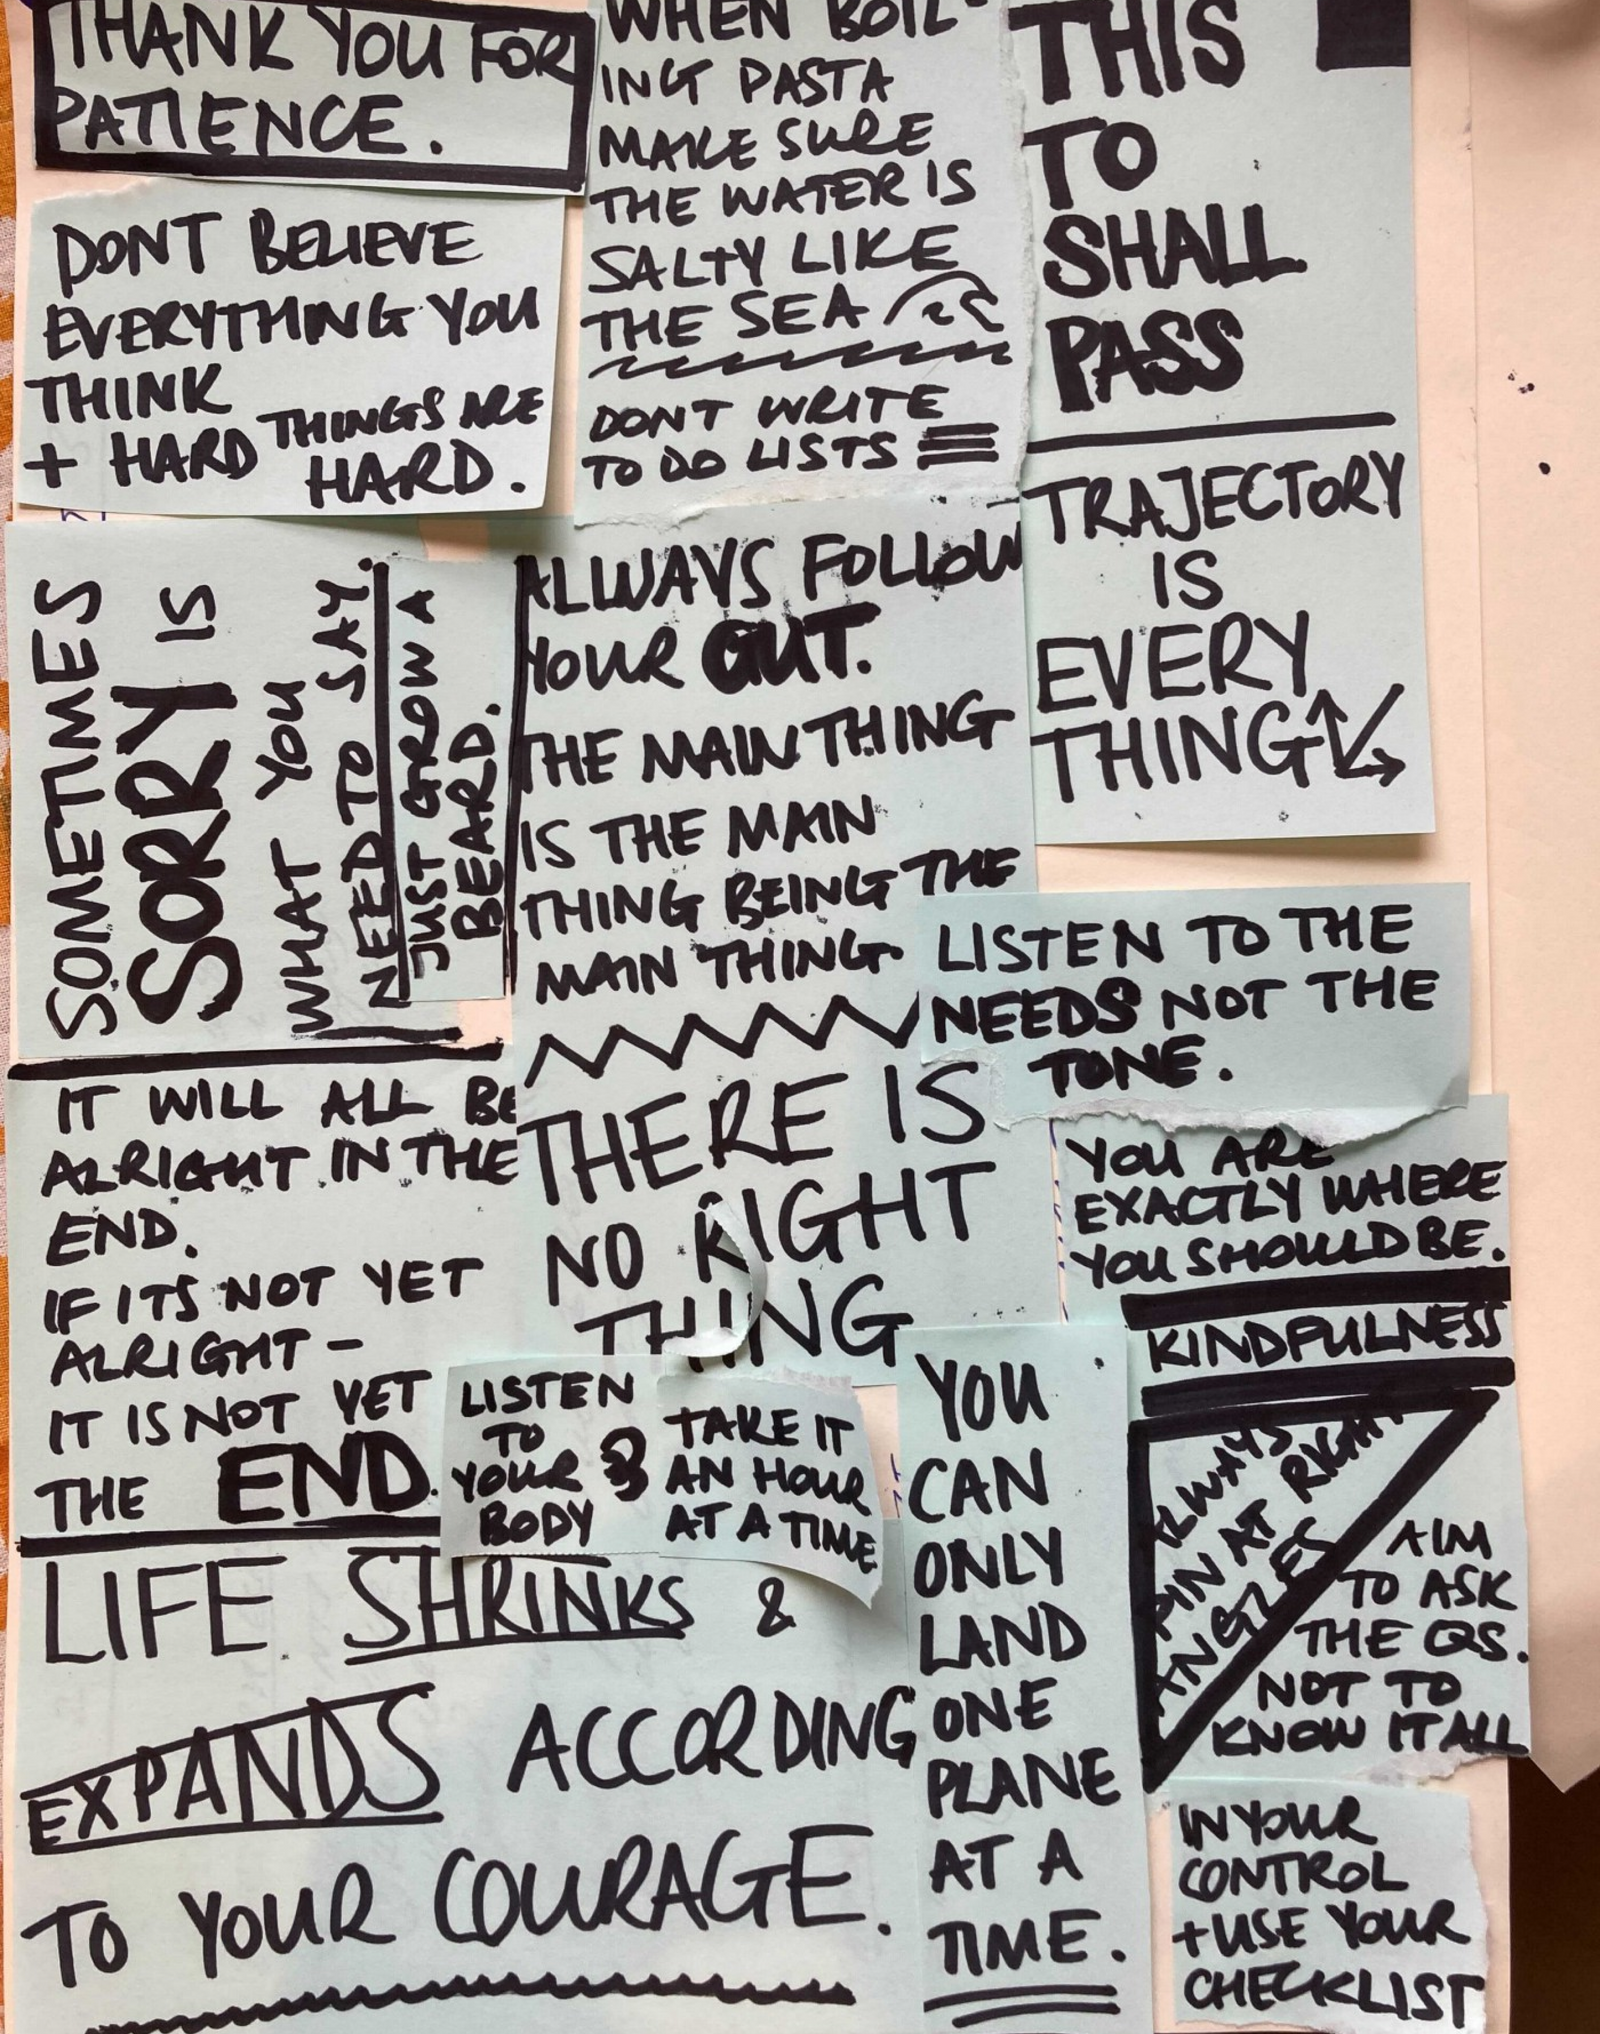 THANK YOU FOR
PATIENCE.
DONT BELIEVE
EVERYTHING YOU
THINK
+ HARD THINGS ARE
HARD.
WHEN BOIL-
ING PASTA
MAKE SURE
THE WATER IS
SALTY LIKE
THE SEA
DONT WRITE
TO DO LISTS
THIS
TO
SHALL
PASS
TRAJECTORY
IS
EVERY
THING
SOMETIMES
SORRY IS
WHAT YOU
NEED TO SAY.
JUST GROW A
BEARD.
ALWAYS FOLLOW
YOUR GUT.
THE MAIN THING
IS THE MAIN
THING BEING THE
MAIN THING.
LISTEN TO THE
NEEDS NOT THE
TONE.
IT WILL ALL BE
ALRIGHT IN THE
END.
IF ITS NOT YET
ALRIGHT -
IT IS NOT YET
THE END.
THERE IS
NO RIGHT
THING
YOU ARE
EXACTLY WHERE
YOU SHOULD BE.
KINDFULNESS
LISTEN
TO
YOUR
BODY
&
TAKE IT
AN HOUR
AT A TIME
LIFE SHRINKS &
EXPANDS ACCORDING
TO YOUR COURAGE.
YOU
CAN
ONLY
LAND
ONE
PLANE
AT A
TIME.
ALWAYS
PIN AT RIGHT
ANGLES
AIM
TO ASK
THE QS.
NOT TO
KNOW IT ALL
IN YOUR
CONTROL
+ USE YOUR
CHECKLIST